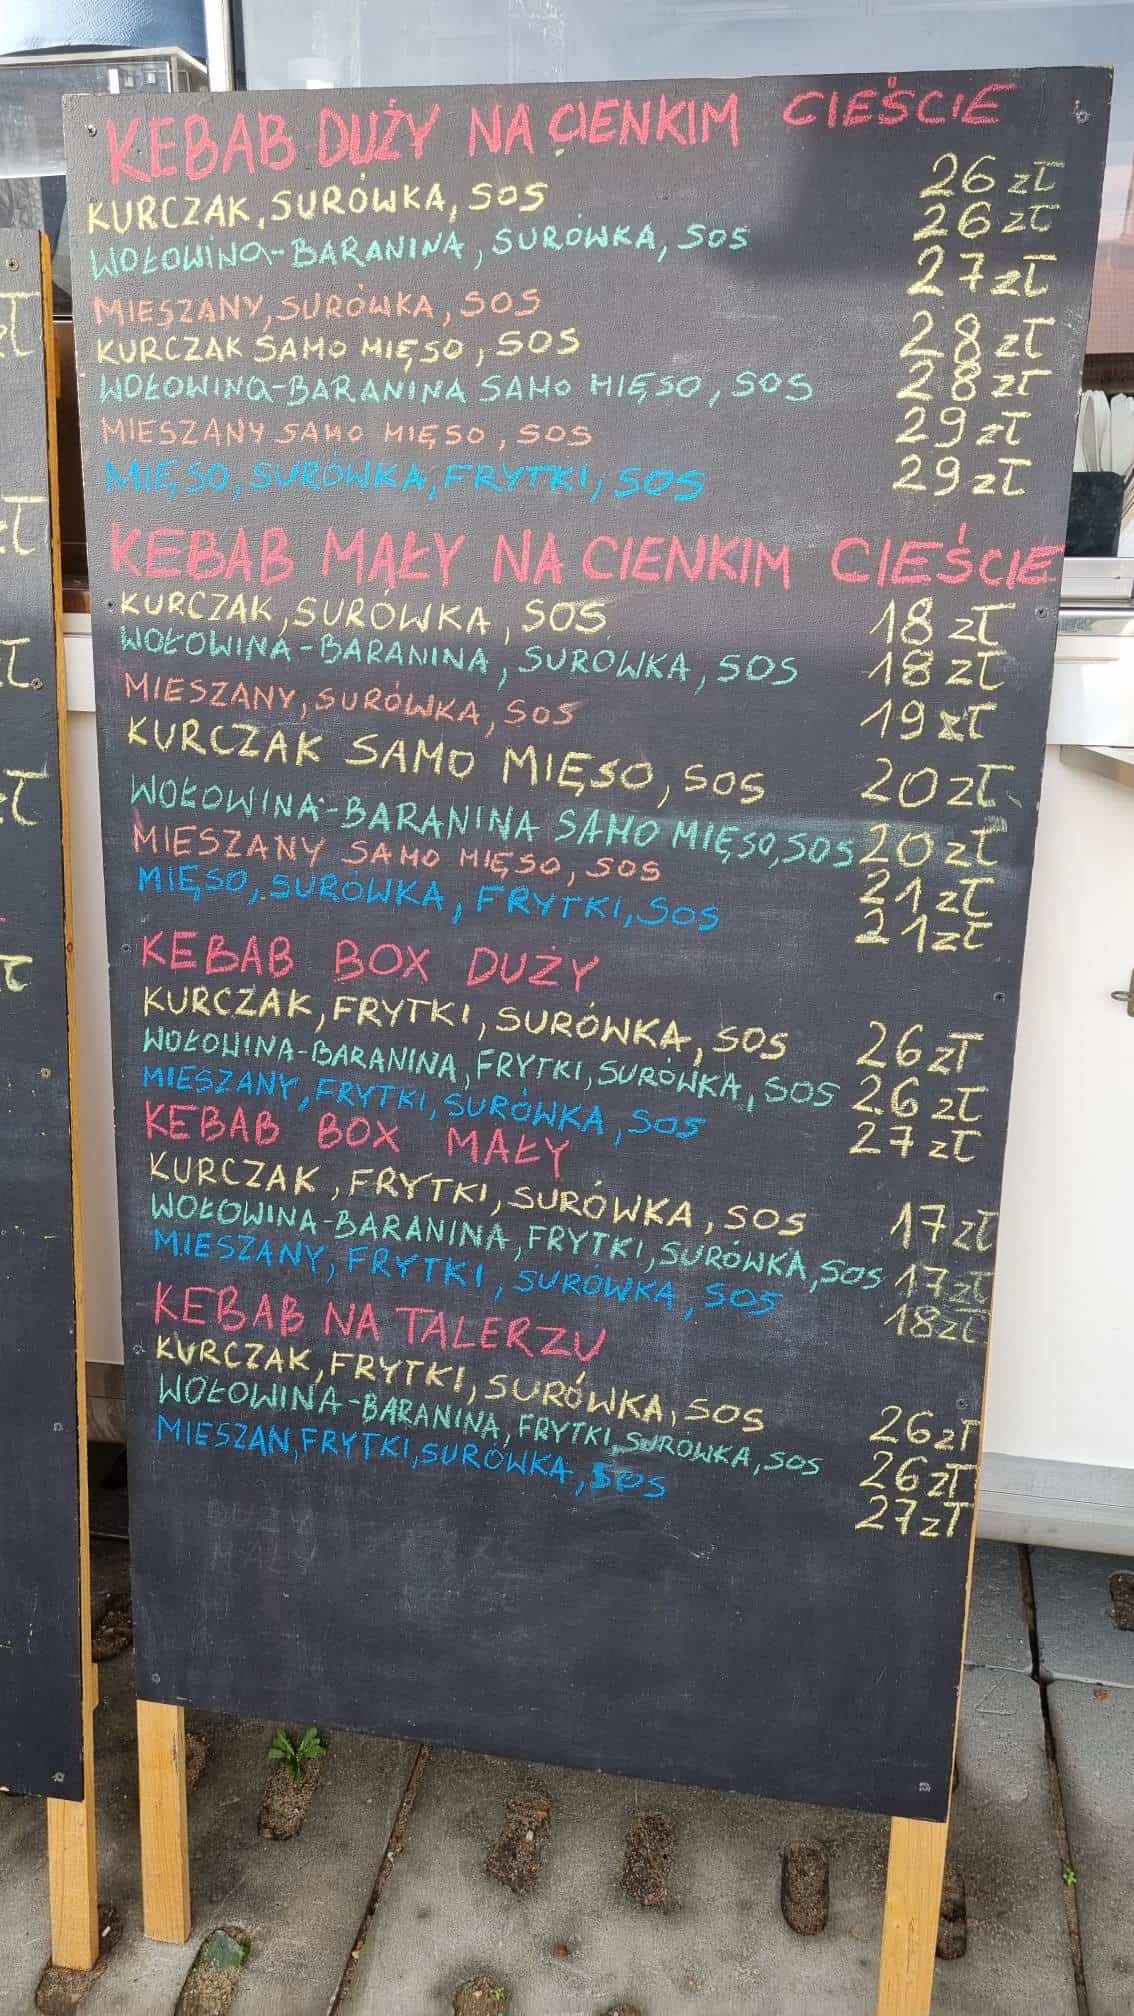 KEBAB DUŻY NA CIENKIM CIEŚCIE
KURCZAK, SURÓWKA, SOS 26 zł
WOŁOWINA-BARANINA, SURÓWKA, SOS 26 zł
MIESZANY, SURÓWKA, SOS 27 zł
KURCZAK SAMO MIĘSO, SOS 28 zł
WOŁOWINA-BARANINA SAMO MIĘSO, SOS 28 zł
MIESZANY SAMO MIĘSO, SOS 29 zł
MIĘSO, SURÓWKA, FRYTKI, SOS 29 zł
KEBAB MĄŁY NA CIENKIM CIEŚCIE
KURCZAK, SURÓWKA, SOS 18 zł
WOŁOWINA-BARANINA, SURÓWKA, SOS 18 zł
MIESZANY, SURÓWKA, SOS 19 zł
KURCZAK SAMO MIĘSO, SOS 20 zł
WOŁOWINA-BARANINA SAMO MIĘSO, SOS 20 zł
MIESZANY SAMO MIĘSO, SOS 21 zł
MIĘSO, SURÓWKA, FRYTKI, SOS 21 zł
KEBAB BOX DUŻY
KURCZAK, FRYTKI, SURÓWKA, SOS 26 zł
WOŁOWINA-BARANINA, FRYTKI, SURÓWKA, SOS 26 zł
MIESZANY, FRYTKI, SURÓWKA, SOS 27 zł
KEBAB BOX MAŁY
KURCZAK, FRYTKI, SURÓWKA, SOS 17 zł
WOŁOWINA-BARANINA, FRYTKI, SURÓWKA, SOS 17 zł
MIESZANY, FRYTKI, SURÓWKA, SOS 18 zł
KEBAB NA TALERZU
KURCZAK, FRYTKI, SURÓWKA, SOS 26 zł
WOŁOWINA-BARANINA, FRYTKI, SURÓWKA, SOS 26 zł
MIESZAN, FRYTKI, SURÓWKA, SOS 27 zł